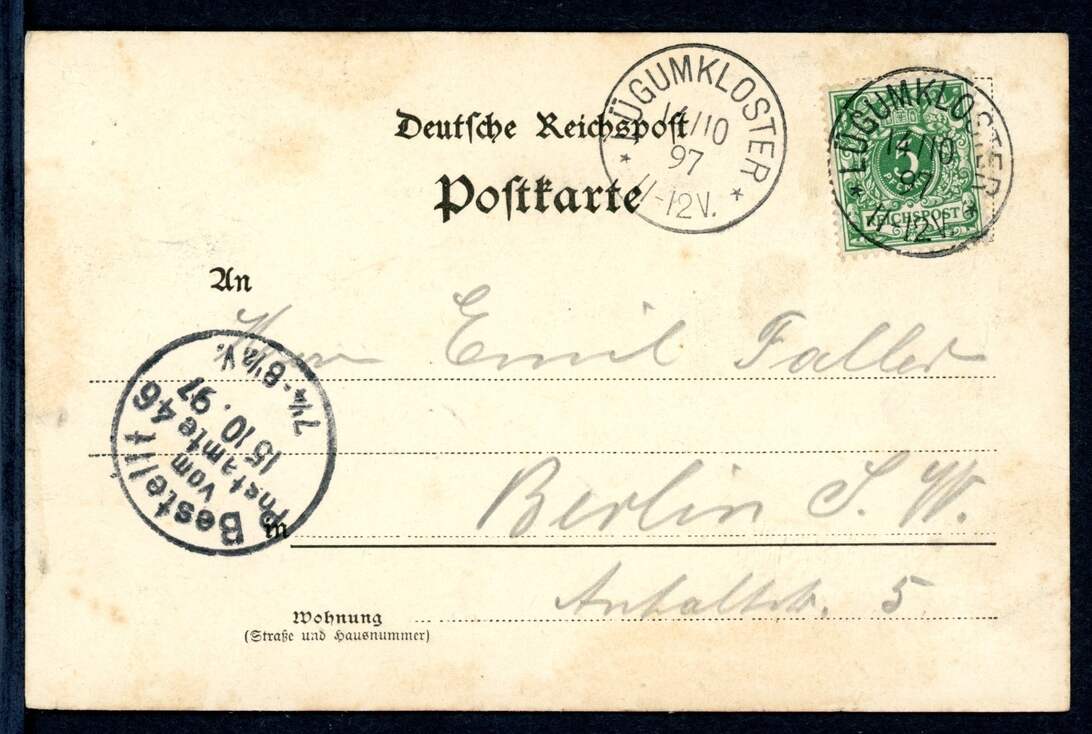 Deutsche Reichspost
Postkarte
LÜGUMKLOSTER
14/10
97
* 11-12V. *
LÜGUMKLOSTER
14/10
97
* 11-12V. *
5
PFENNIG
REICHSPOST
An
Herrn Emil Faller
Bestellt
vom
Postamte 46
15/10. 97
7¼-8½V.
in
Berlin S. W.
Wohnung
Anhaltstr. 5
(Straße und Hausnummer)